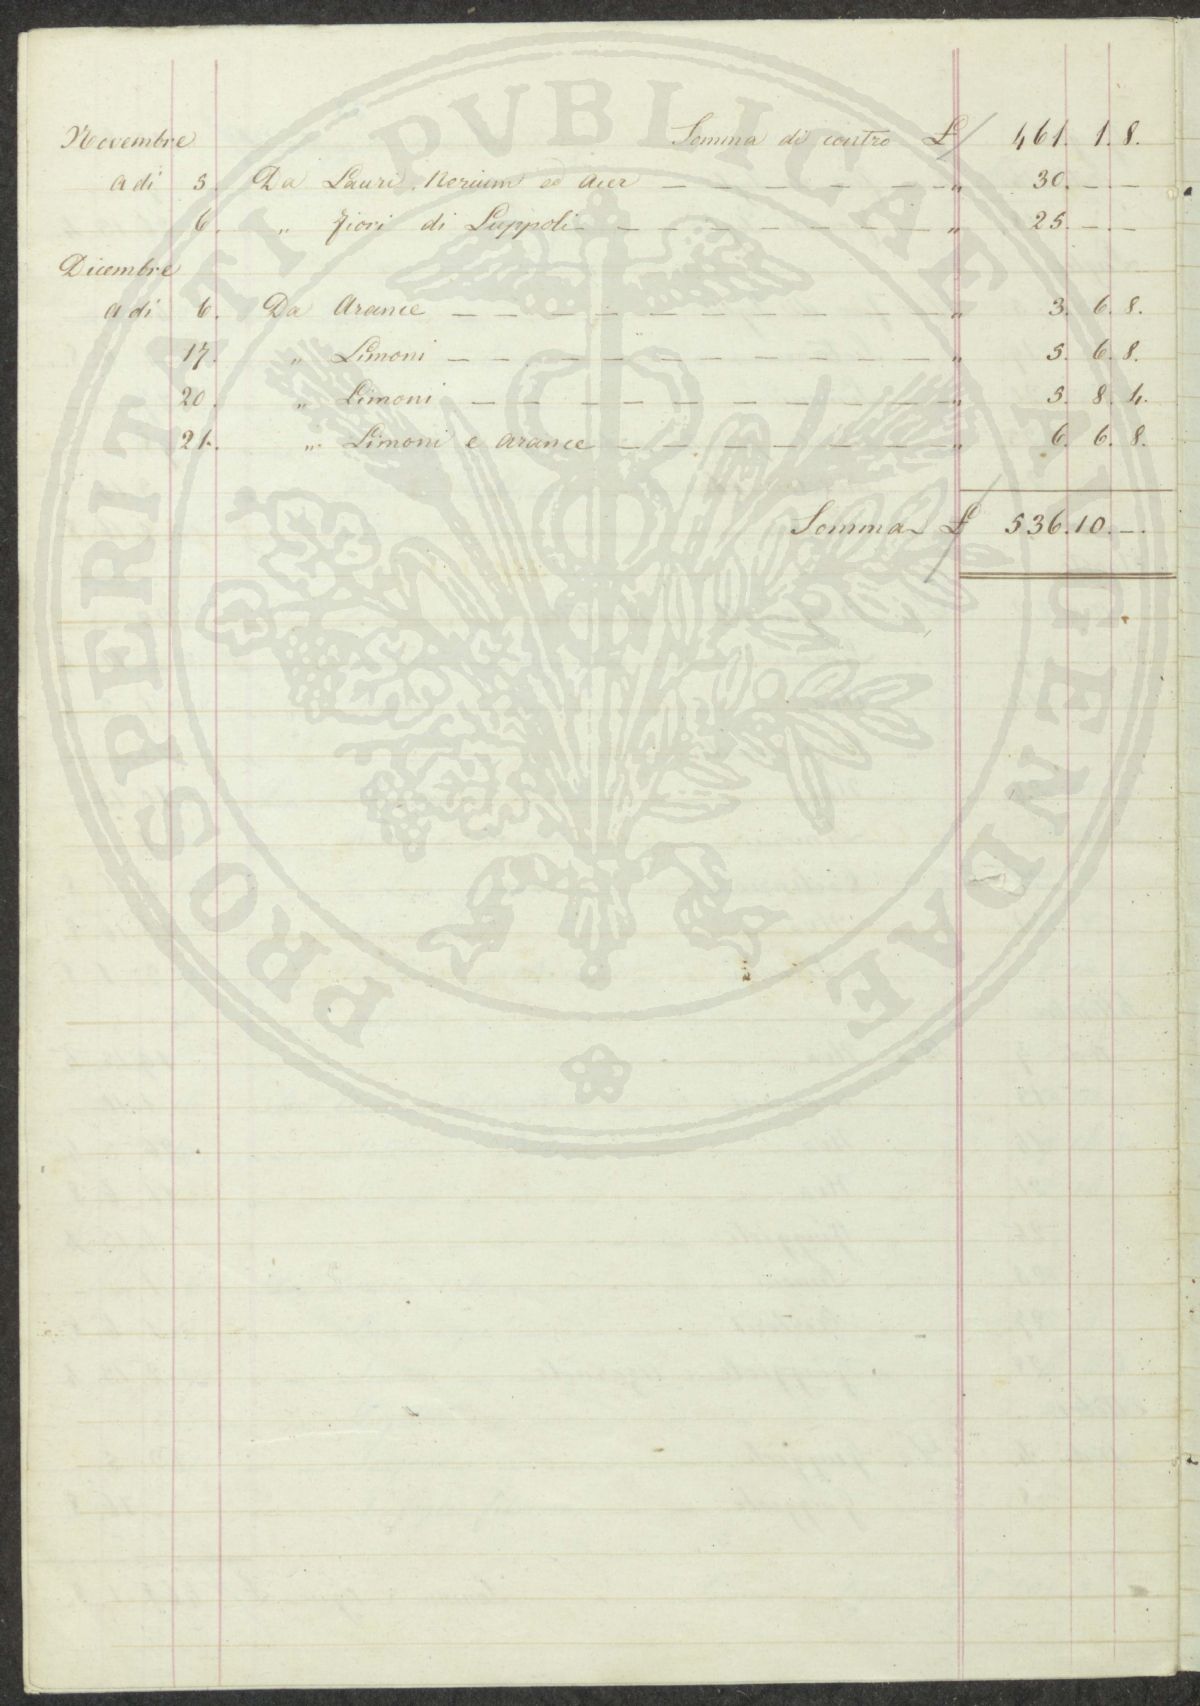 PROSPERITATI PVBLICAE AVGENDAE
Novembre Somma di contro £ 461. 1. 8.
a di 5. Da Lauri, Nerium ed Acer — — — — — — — " 30. — —
6. " Fiori di Luppoli — — — — — — — — — " 25. — —
Dicembre
a di 6. Da Arance — — — — — — — — — — — " 3. 6. 8.
17. " Limoni — — — — — — — — — — — " 5. 6. 8.
20. " Limoni — — — — — — — — — — — " 5. 8. 4.
21. " Limoni e Arance — — — — — — — — " 6. 6. 8.
Somma £ 536. 10. —.